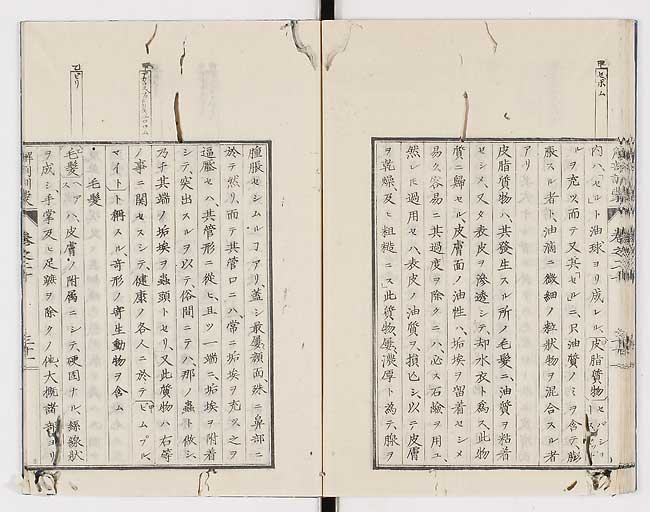 セボム
内ハ「セル」ト油球ヨリ成レル、皮脂質物
ルヲ充ツ、而テ又其「セル」ニ、只油質ノミヲ含テ、膨
脹スル者ト、油滴ニ微細ノ粒状物ヲ混合スル者
アリ
皮脂質物ハ、其發生スル所ノ毛髪ニ、油質ヲ粘着
セシメ、又タ表皮ヲ滲透シテ、却水衣ト為ス、此物
質ニ歸セル、皮膚面ノ油性ハ、垢埃ヲ留着セシメ
易ク容易ニ其過度ヲ除クニハ、必ス石鹸ヲ用ユ、
然レ𪜈過用セハ、表皮ノ油質ヲ損亡シ、以テ皮膚
ヲ乾燥、及ヒ粗糙ニス、此質物、屢濃厚ト為テ、腺ヲ
腫脹セシムルヿアリ、蓋シ最屢顔面、殊ニ鼻部ニ
於テ然リ、而テ其管口ニハ、常ニ垢埃ヲ充ツ、之ヲ
逼壓セハ、其管形ニ從ヒ、且ツ一端ニ、垢埃ヲ附着
シテ、突出スルヲ以テ、俗間ニテハ、那ノ蟲ト做シ、
乃チ其端ノ垢埃ヲ蟲頭トセリ、又此質物ハ、右等
ノ事ニ関セスシテ、健康ノ各人ニ於テ「ピムプル、
マイト」ト稱スル、奇形ノ寄生動物ヲ含ム
毛髪
毛髪ハ、皮膚ノ附属ニシテ、硬固ナル、縧線狀
ヲ成シ手掌及ヒ足蹠ヲ除クノ他大概諸部ヨリ
解剖訓蒙
巻之二十